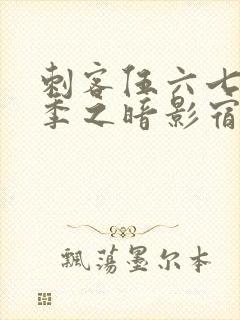 刺客伍六七
季之暗影宿
飘荡墨尔本